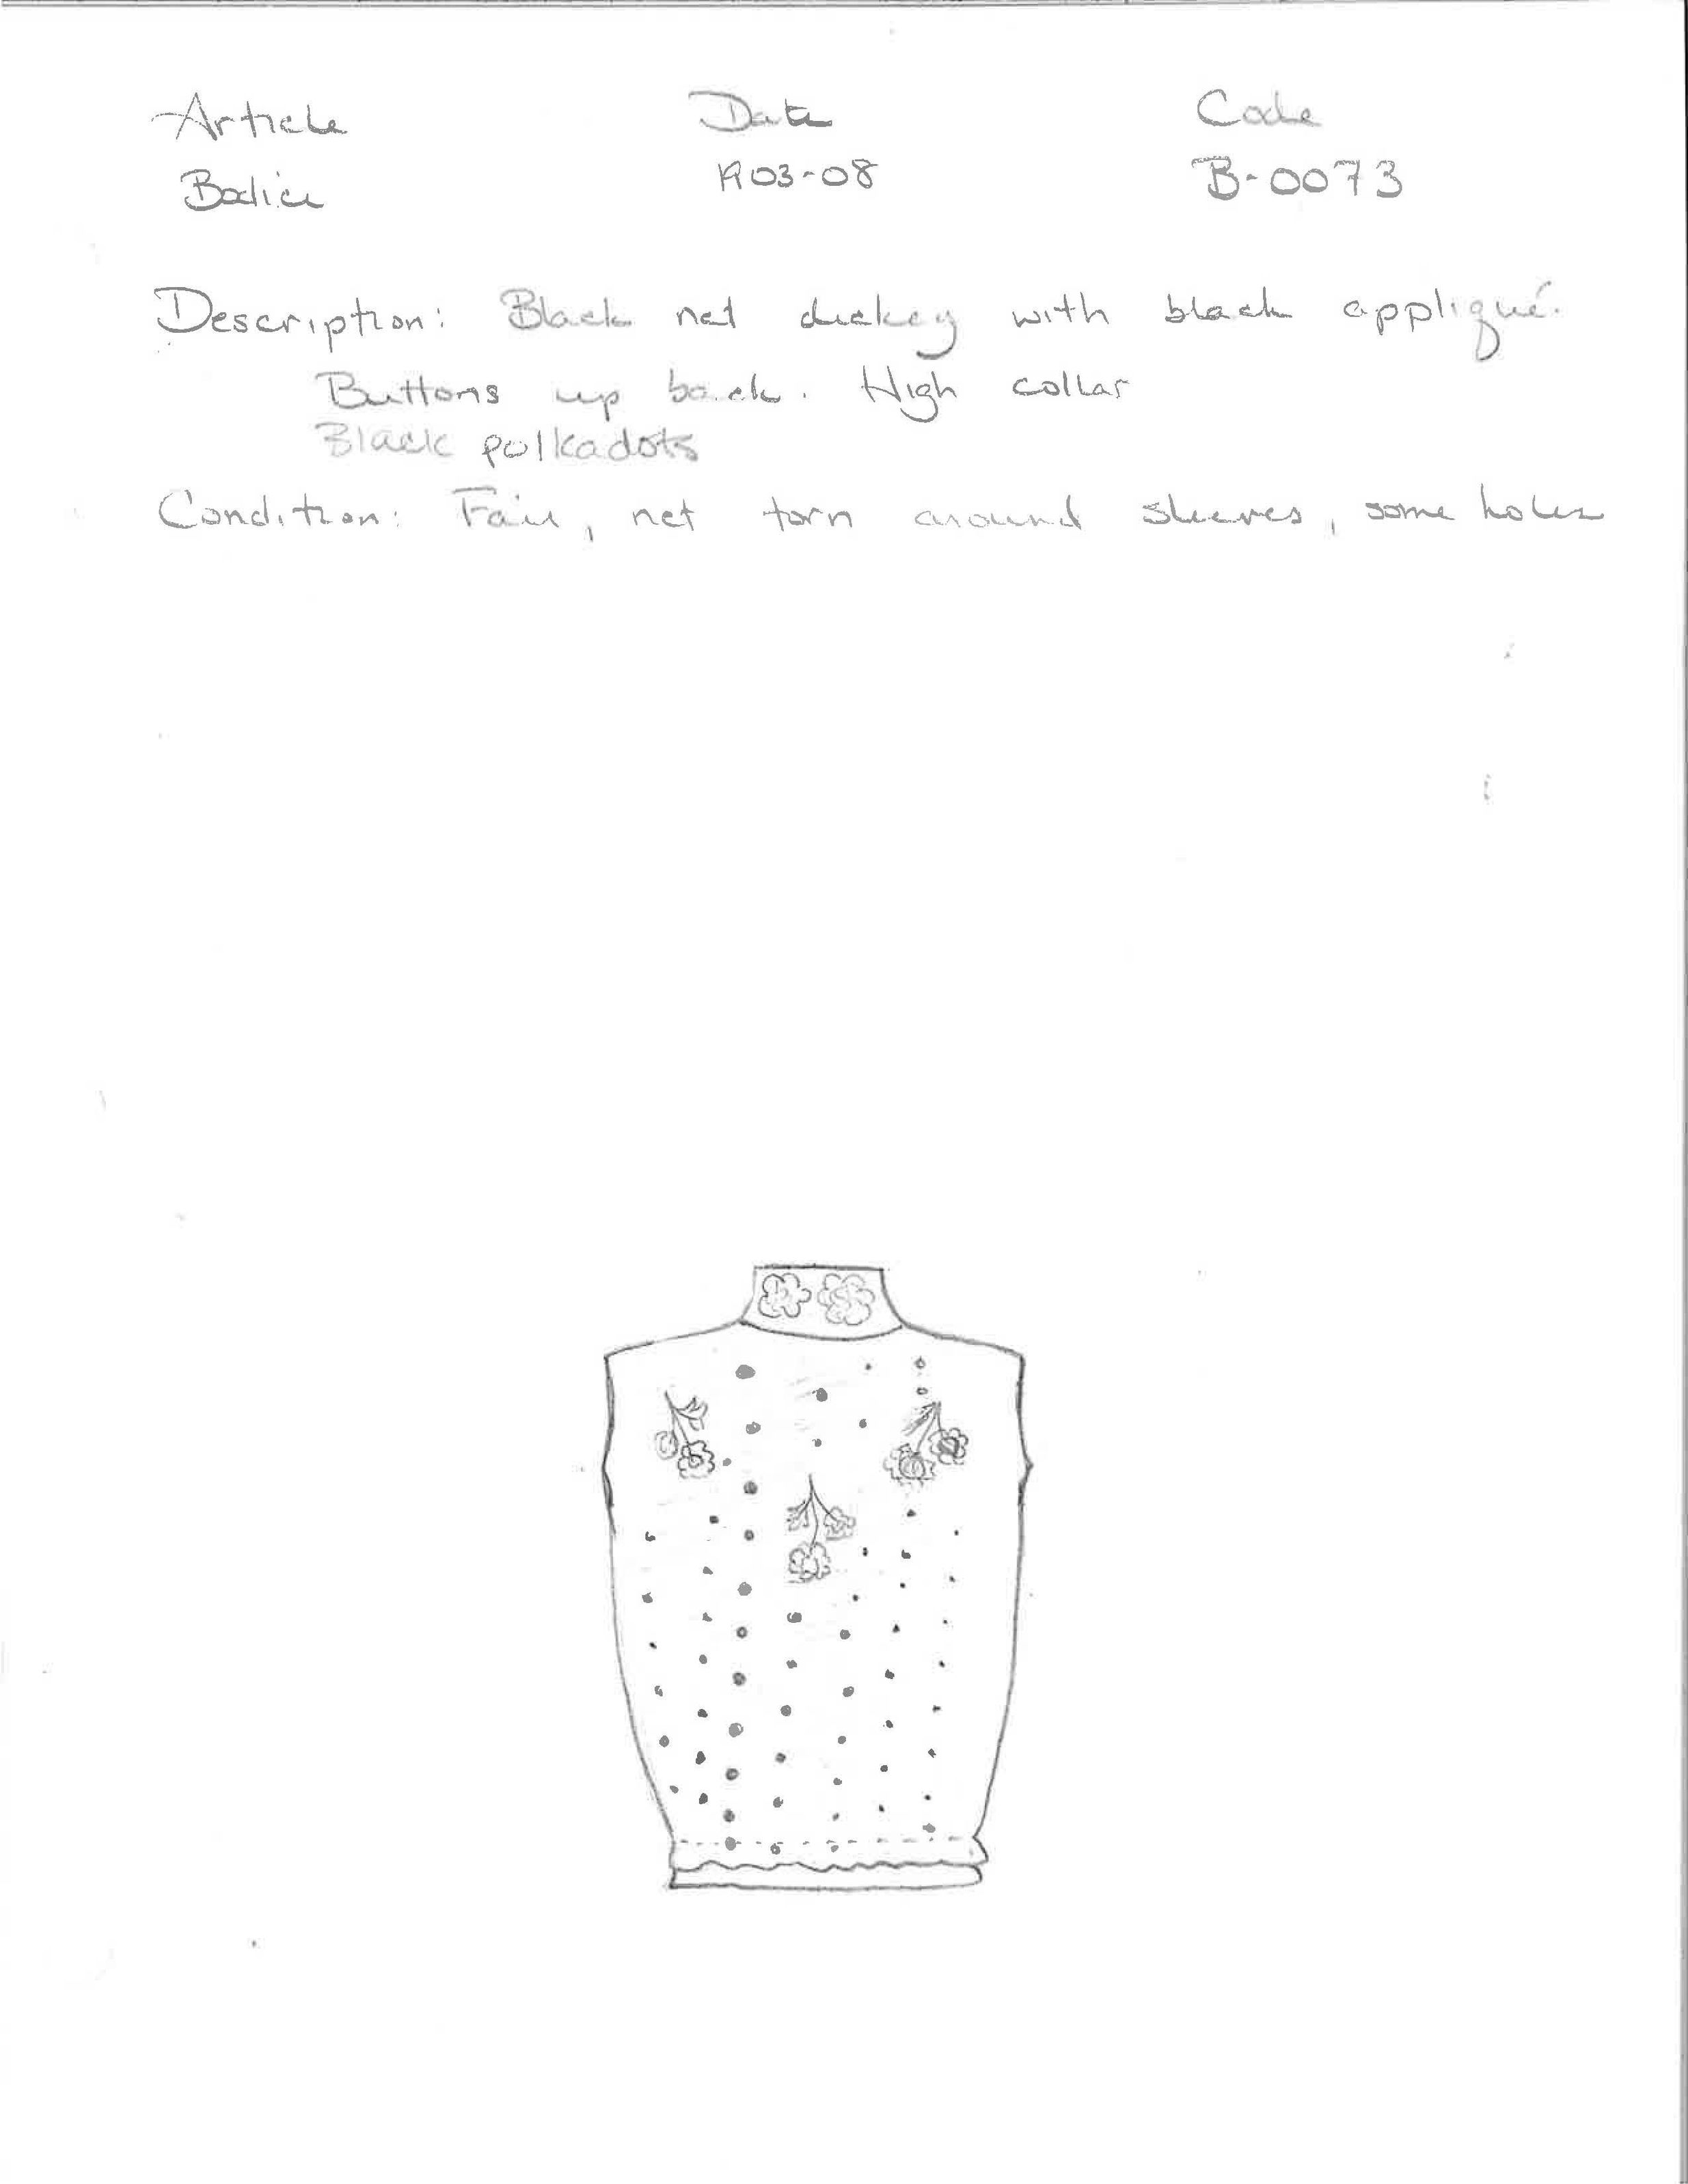 Article Date Code
Bodice 1903-08 B-0073
Description: Black net dickey with black appliqué.
Buttons up back. High collar
Black polkadots
Condition: Fair, net torn around sleeves, some holes